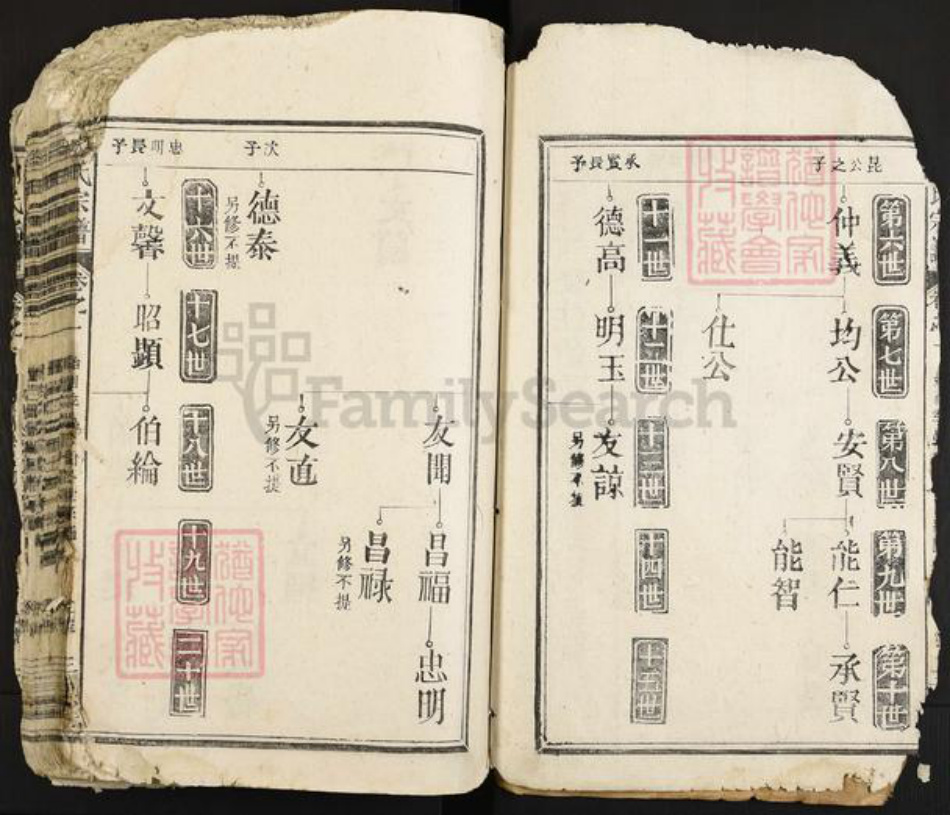 昆公之子
第六世
仲義
第七世
均公
仕公
第八世
安賢
第九世
能仁
能智
第十世
承賢
承賢長子
十一世
德高
十二世
明玉
十三世
友諒
另修不提
十四世
十五世
次子
德泰
另修不提
友聞
友直
另修不提
昌福
昌禄
另修不提
忠明
忠明長子
十六世
文馨
十七世
昭顯
十八世
伯綸
十九世
二十世
氏宗譜
卷之一
收藏
譜學會
FamilySearch